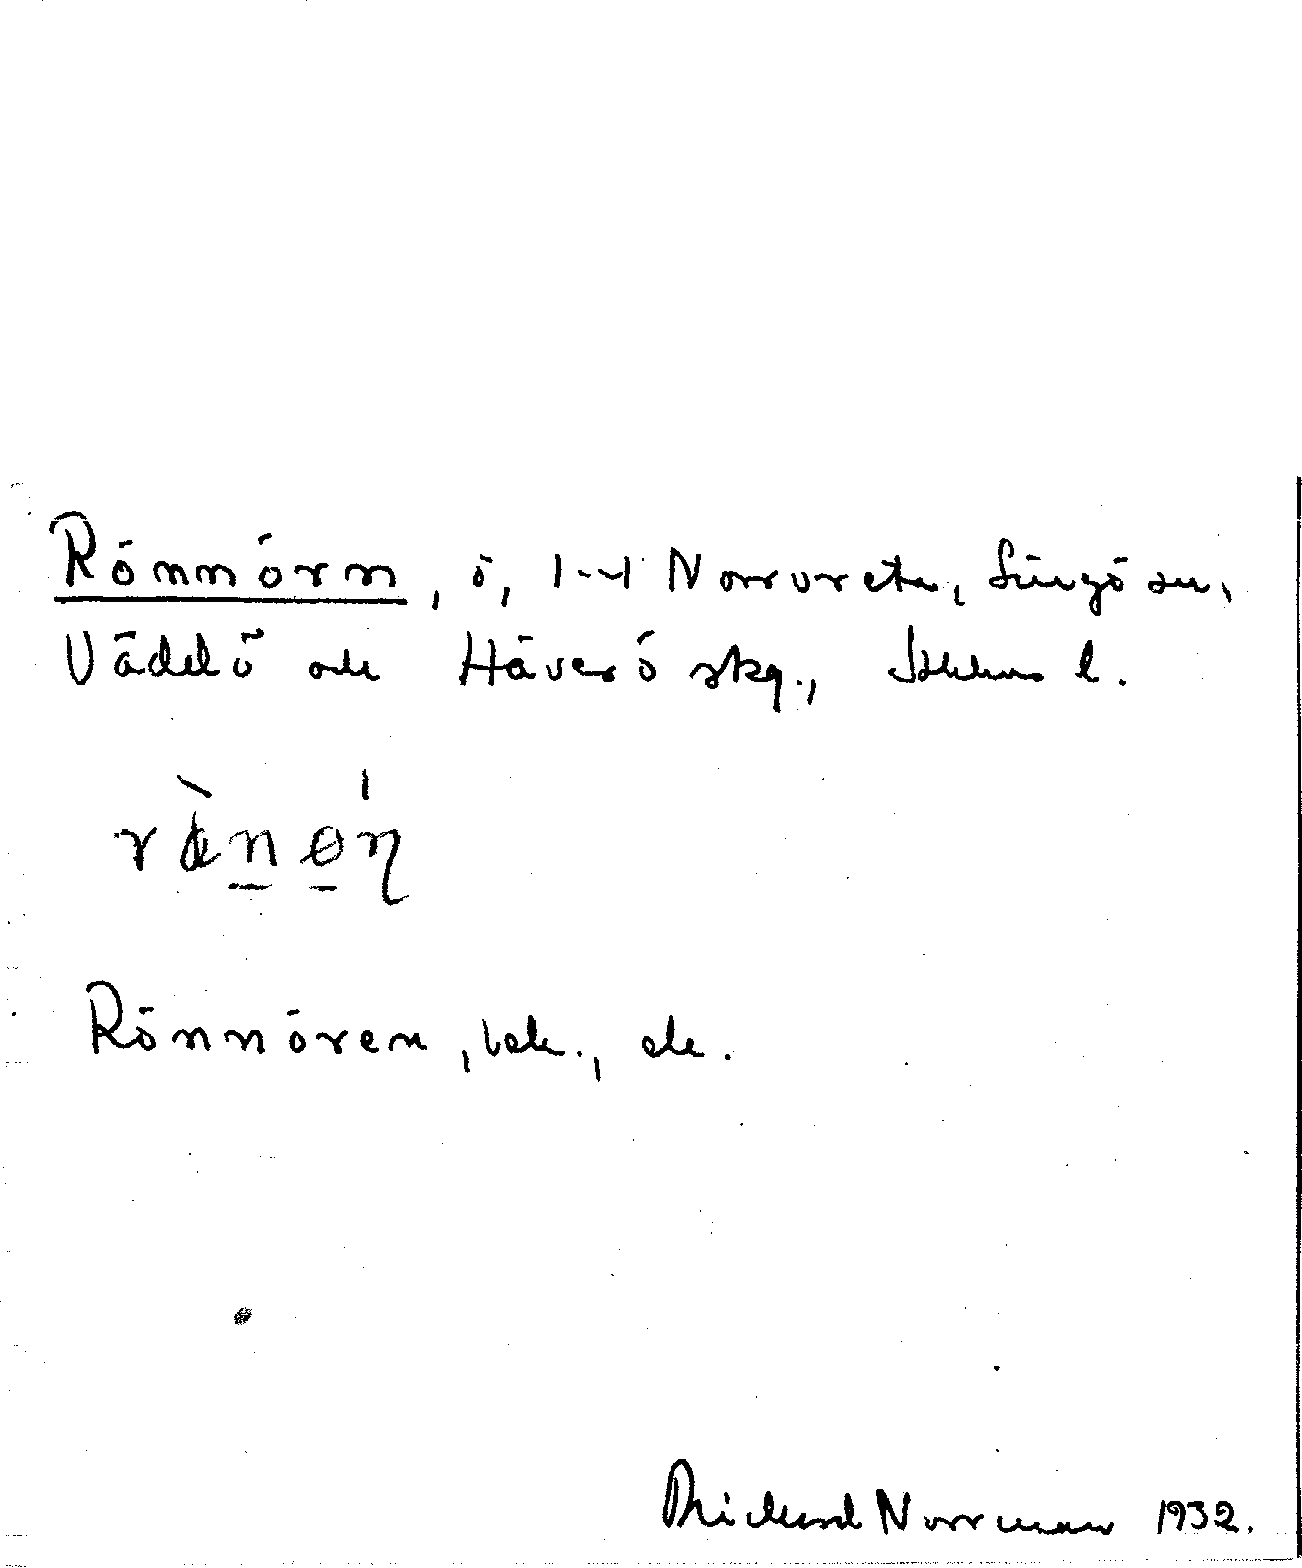 Rönnörn, ö, 1-1 Norrvreta, Singö sn,
Väddö och Häverö skg., Sthlms l.
Rönnören, bek., ek.
Rickard Norrman 1932.